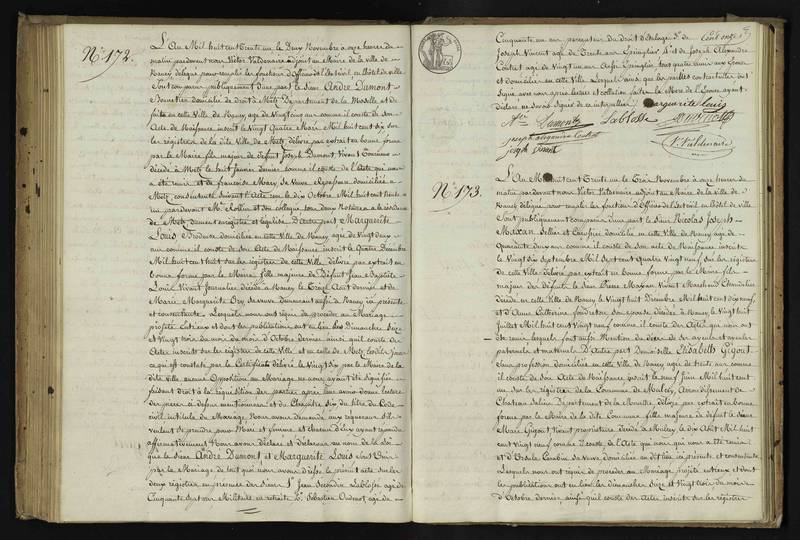 N.º 172.
L'An Mil huit cent Trente un le Deux Novembre à onze heures du
matin pardevant nous Victor Valdenaire adjoint au Maire de la ville de
Nancy délégué pour remplir les fonctions d'Officier de l'État civil en l'hôtel de ville
Sont comparus publiquement d'une part le Sieur André Dumont
domicilié de droit à Metz Département de la Moselle et de
fait en cette Ville de Nancy agé de Vingt cinq ans comme il conste de son
Acte de Naissance inscrit le Vingt Quatre Mars Mil huit cent six sur
les registres de la dite Ville de Metz délivré par extrait en bonne forme
par le Maire fils majeur de défunt Joseph Dumont, Vivant
décédé à Metz le huit Janvier dernier comme il conste de l'Acte qui nous
a été remis et de françoise sa Veuve Repasseuse domiciliée à
Metz consentante suivant l'Acte reçu le dix Octobre Mil huit cent trente
un pardevant M.e Rollin et son collègue tous deux Notaires à la résidence
de Metz dument enregistré et légalisé D'autre part Marguerite
Louis Brodeuse domiciliée en cette Ville de Nancy agée de Vingt deux
ans comme il conste de son Acte de Naissance inscrit le Quatre Décembre
Mil huit cent huit sur les registres de cette Ville délivré par extrait en
bonne forme par le Maire, fille majeure de Défunt Jean Baptiste
Louis Vivant Journalier décédé à Nancy le Treize Août dernier et de
Marie Marguerite Ory sa veuve demeurant aussi à Nancy ici présente
et consentante Lesquels nous ont requis de procéder au Mariage
projetté entreux et dont les publications ont eu lieu les Dimanches Seize
et Vingt trois du mois d'Octobre dernier ainsi qu'il conste des
Actes inscrits sur les registres de cette Ville et en celle de Metz
ce qui est constaté par le Certificat délivré le Vingt six par le Maire de la
dite Ville aucune Opposition au Mariage ne nous ayant été signifiée
faisant droit à la réquisition des parties après leur avoir donné lecture
des pièces ci dessus mentionnées et du Chapitre six du titre du Code
civil intitulé du Mariage Nous avons demandé aux requérans s'ils
veulent se prendre pour Mari et femme et chacun d'eux ayant répondu
affirmativement Nous avons déclaré et déclarons au nom de la loi
que le Sieur André Dumont et Marguerite Louis sont Unis
par le Mariage de tout quoi nous avons dressé le présent acte sur les
deux registres en présence des Sieurs J.n Jean Secondin Lablosse agé de
Cinquante sept ans Militaire en retraite S.r Sébastien agé de
Cinquante un ans percepteur du droit d'étalage S.r
Joseph Vincent agé de Trente ans Epinglier et de Joseph Alexandre
Contrel agé de Vingt un ans Epinglier tous quatre amis aux Epoux
et domiciliés en cette Ville Lesquels ainsi que les parties contractantes ont
signé avec nous après lecture et collation faites La Mère de l'Epouse ayant
déclaré ne savoir signer de ce interpellée
Marguerite Louis
Dumont
Lablosse
joseph alexandre
joseph vincent
V. Valdenaire
N.º 173.
L'An Mil huit cent Trente un le Trois Novembre à onze heures du
matin pardevant nous Victor Valdenaire adjoint au Maire de la ville de
Nancy délégué pour remplir les fonctions d'Officier de l'État civil en l'hôtel de ville
Sont publiquement comparus d'une part le Sieur Nicolas Joseph
Maixan Sellier et Carossier domicilié en cette Ville de Nancy agé de
Quarante deux ans comme il conste de son acte de Naissance inscrit le
Vingt six Septembre Mil sept cent Quatre Vingt neuf sur les registres
de cette Ville délivré par extrait en bonne forme par le Maire fils
majeur des défunts le Sieur Pierre Maixan Vivant Marchand Chandelier
décédé en cette Ville de Nancy le Vingt huit Décembre Mil huit cent dix neuf
et d'Anne Catherine son épouse décédée à Nancy le Vingt
Juillet Mil huit cent Vingt neuf comme il conste des Actes qui nous ont
été remis lesquels font aussi Mention du décès de ses ayeuls et ayeules
paternels et maternels D'autre part Demoiselle Elisabeth Gigout
sans profession domiciliée en cette Ville de Nancy agée de trente ans comme
il conste de son Acte de Naissance inscrit le neuf Juin Mil huit cent
un sur les registres de la Commune de Mulcey, Arrondissement de
Château Salins Département de la Meurthe, délivré par extrait en bonne
forme par le Maire de la dite Commune fille majeure de défunt le Sieur
Marie Gigout, vivant propriétaire décédé à Mulcey le dix Août Mil huit
cent Vingt neuf comme il conste de l'Acte qui nous a été remis
et d'Ursule sa Veuve domiciliée au dit lieu ici présente et consentante
Lesquels nous ont requis de procéder au Mariage projetté entreux et dont
les publications ont eu lieu les dimanches seize et vingt trois du mois
d'Octobre dernier ainsi qu'il conste des Actes inscrits sur les registres